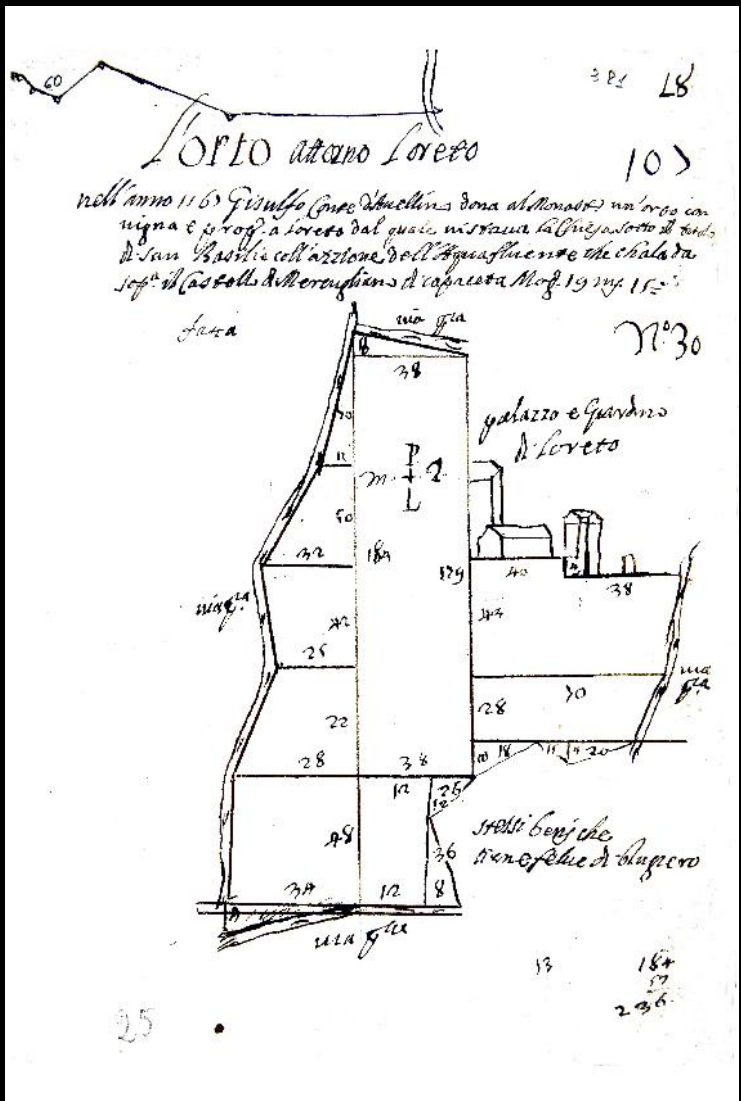 60
381 L8
L'orto attorno Loreto
107
nell'anno 1167 Gisulfo Conte d'Avellino dona al Monast.o un'orto con
vigna e prop. a Loreto dal quale vi staeva la Chiesa sotto il titolo
di San Basilio coll'azzione dell'Aqua fluente che chala da
sop.a il Castello di Merculiano di capaceta Mog. 19 my. 15
fatta
via
N.o 30
8
38
palazzo e Giardino
di Loreto
P
m 2
L
50
12
50
32
184
179
40
38
via
42
43
25
30
via
22
28
28
38
18
20
12
26
12
48
stessi beni che
tiene felice di
36
34
12
8
via
13
184
236
25